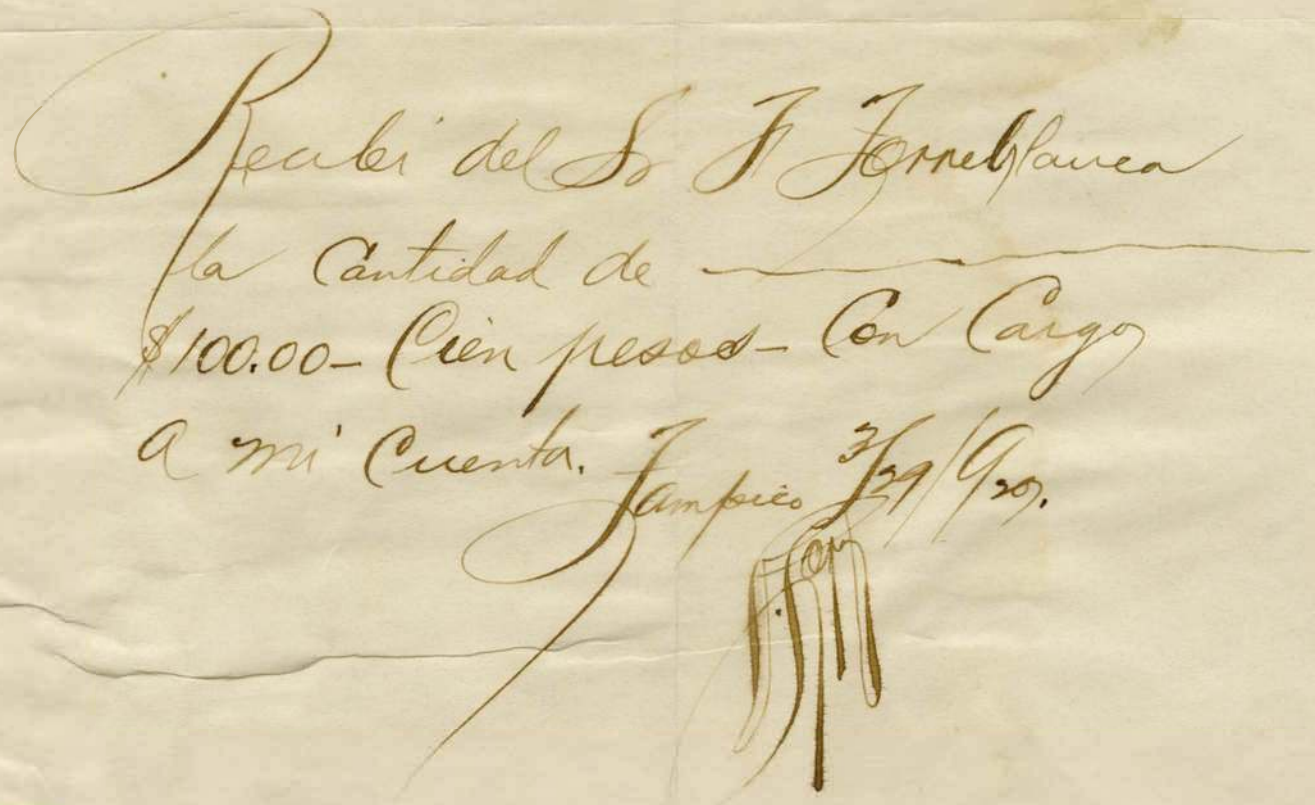 Recibi del Sr F Torreblanca
la Cantidad de
$100.00 - Cien pesos - Con Cargo
a mi Cuenta.
Tampico 3/29/920.